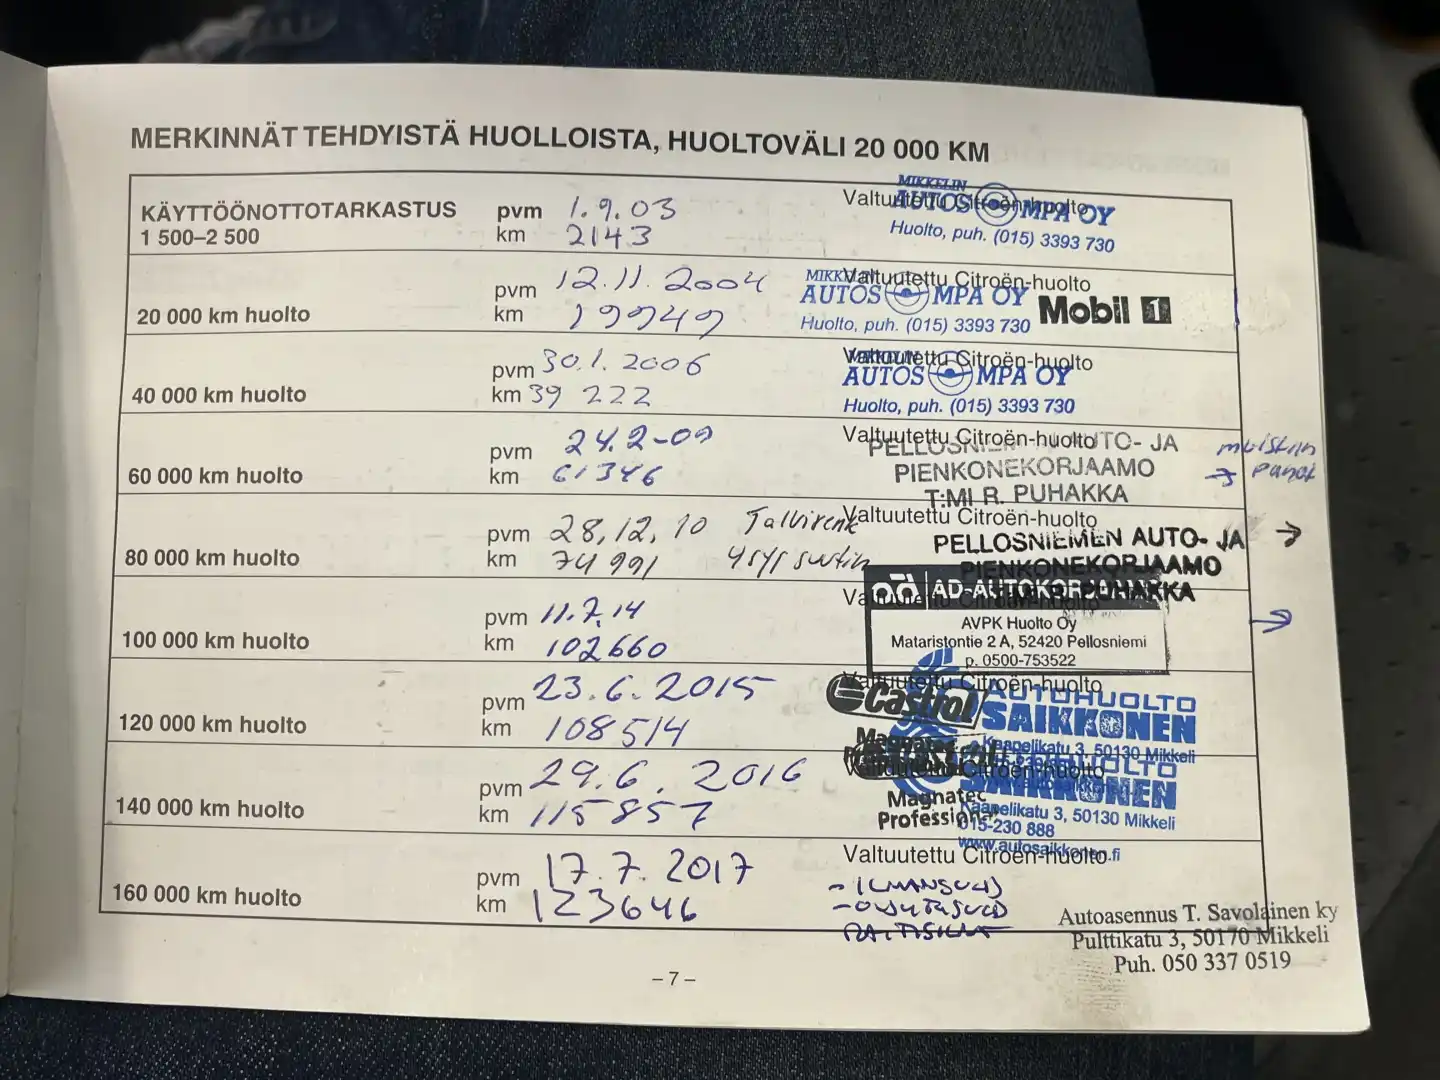 MERKINNÄT TEHDYISTÄ HUOLLOISTA, HUOLTOVÄLI 20 000 KM
KÄYTTÖÖNOTTOTARKASTUS
1 500–2 500
pvm 1.9.03
km 2143
Valtuutettu Citroën-huolto
MIKKELIN
AUTOSOMPA OY
Huolto, puh. (015) 3393 730
20 000 km huolto
pvm 12.11.2004
km 19949
Valtuutettu Citroën-huolto
MIKKELIN
AUTOSOMPA OY
Huolto, puh. (015) 3393 730
Mobil 1
40 000 km huolto
pvm 30.1.2006
km 39 222
Valtuutettu Citroën-huolto
MIKKELIN
AUTOSOMPA OY
Huolto, puh. (015) 3393 730
60 000 km huolto
pvm 24.2-09
km 61346
Valtuutettu Citroën-huolto
PELLOSNIEMEN AUTO- JA
PIENKONEKORJAAMO
T:MI R. PUHAKKA
→
80 000 km huolto
pvm 28,12,10
km 74991
Valtuutettu Citroën-huolto
PELLOSNIEMEN AUTO- JA
PIENKONEKORJAAMO
R. PUHAKKA
→
100 000 km huolto
pvm 11.7.14
km 102660
AD-AUTOKORJAAMO
AVPK Huolto Oy
Mataristontie 2 A, 52420 Pellosniemi
p. 0500-753522
→
120 000 km huolto
pvm 23.6.2015
km 108514
Valtuutettu Citroën-huolto
Castrol
Magnatec
AUTOHUOLTO
SAIKKONEN
Kaapelikatu 3, 50130 Mikkeli
140 000 km huolto
pvm 29.6.2016
km 115857
Valtuutettu Citroën-huolto
Castrol
Magnatec
Professional
AUTOHUOLTO
SAIKKONEN
Kaapelikatu 3, 50130 Mikkeli
015-230 888
www.autosaikkonen.fi
160 000 km huolto
pvm 17.7.2017
km 123646
Valtuutettu Citroën-huolto
Autoasennus T. Savolainen ky
Pulttikatu 3, 50170 Mikkeli
Puh. 050 337 0519
– 7 –